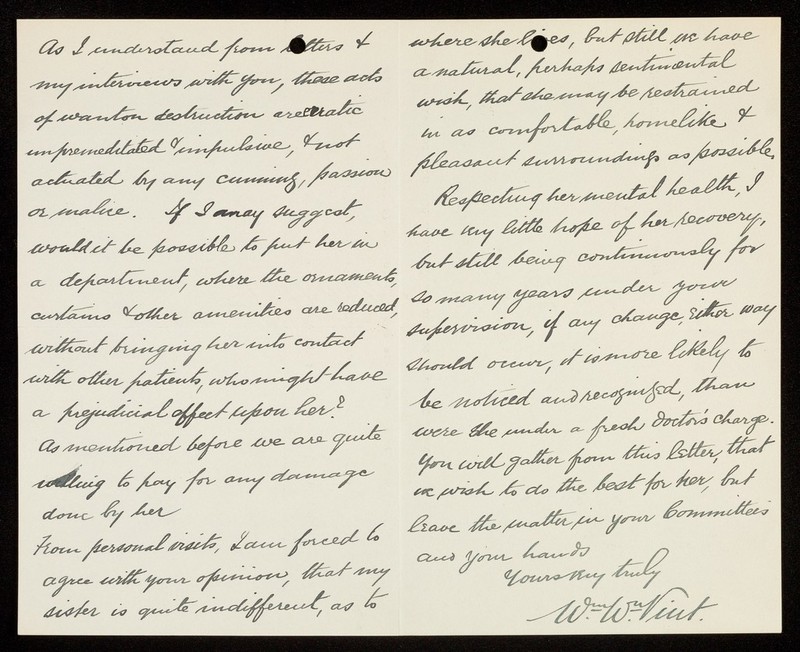 As I understand from letters &
my interviews with you, these acts
of wanton destruction are erratic
unpremeditated & impulsive, & not
actuated by any cunning, passion
or malice. If I may suggest,
would it be possible to put her in
a department, where the ornaments,
curtains & other amenities are reduced,
without bringing her into contact
with other patients, who might have
a prejudicial affect upon her?
As mentioned before we are quite
willing to pay for any damage
done by her
From personal visits, I am forced to
agree with your opinion, that my
sister is quite indifferent, as to
where she lives, but still we have
a natural, perhaps sentimental
wish, that she may be restrained
in as comfortable, homelike &
pleasant surroundings as possible.
Respecting her mental health, I
have very little hope of her recovery,
but still being continuously for
so many years under your
supervision, if any change, either way
should occur, it is more likely to
be noticed and recognized, than
were she under a fresh doctor's charge.
You will gather from this letter, that
we wish to do the best for her, but
leave the matter in your Committee's
and your hands
Yours very truly
Wm. Wn. Vint.